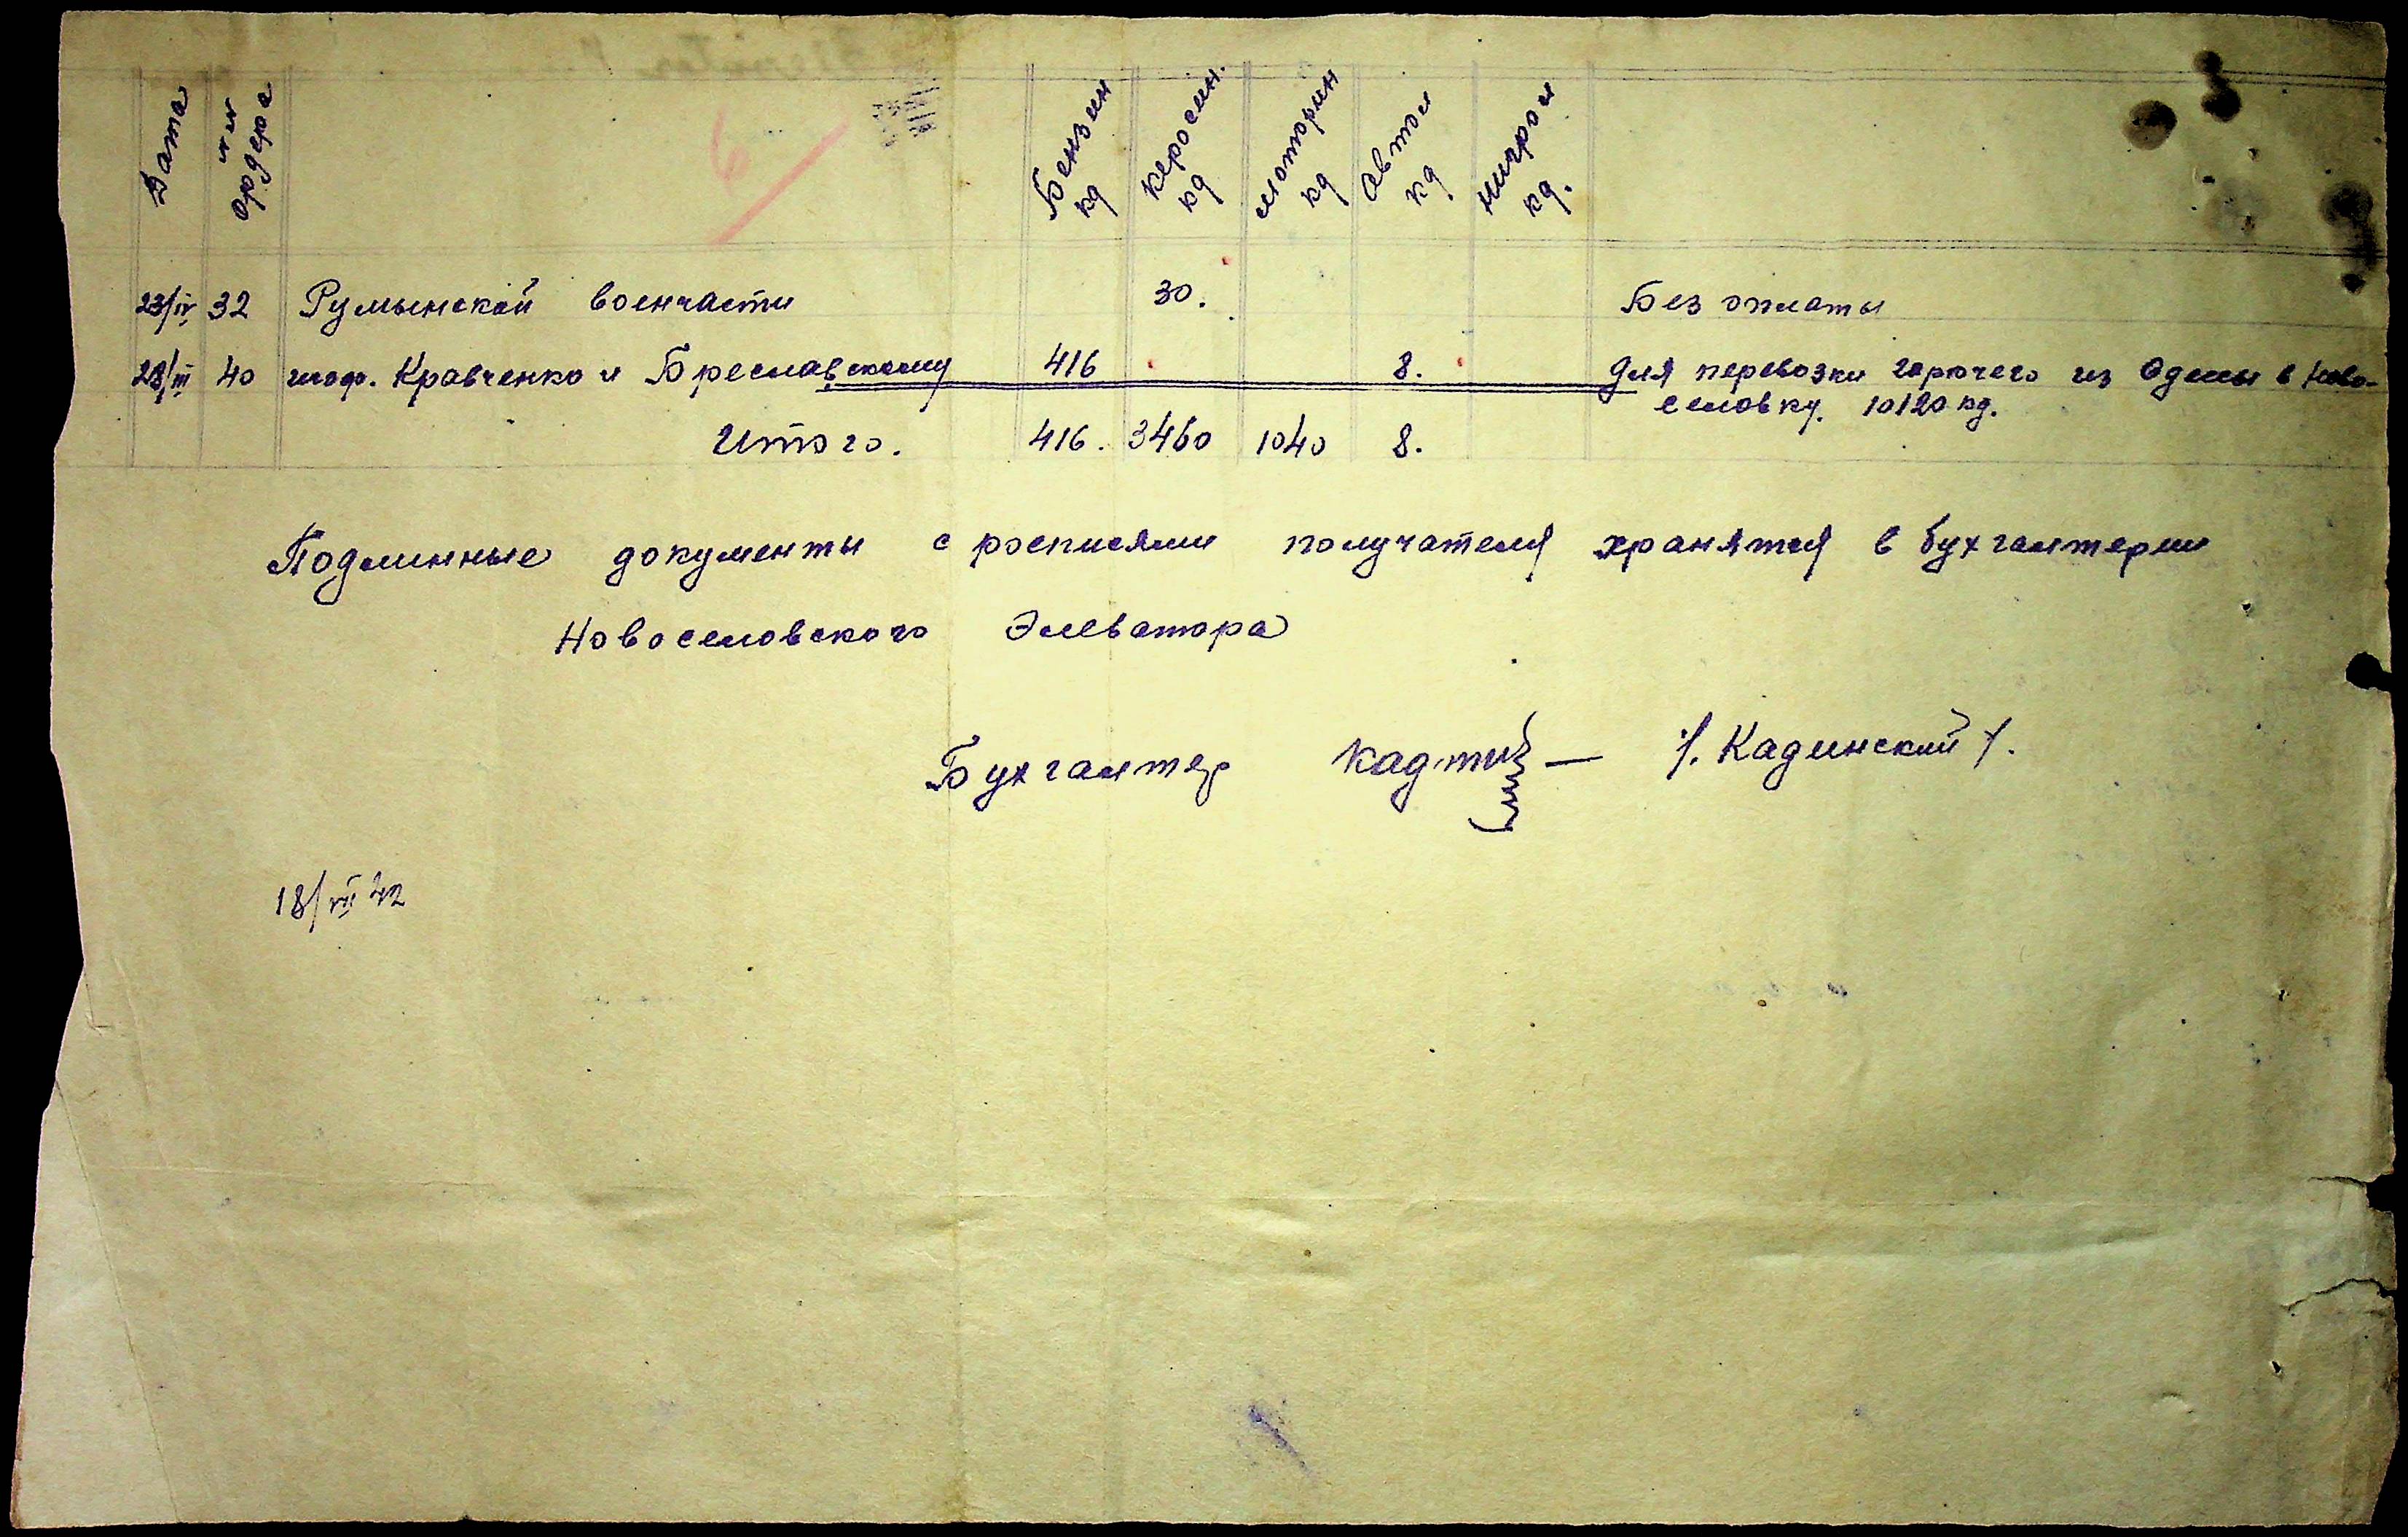 Дата
№№ ордера
Бензин кд
керосин. кд
моторин кд
автол кд
нигрол кд.
6
23/IV 32 Румынской военчасти 30. Без оплаты
28/III 40 шоф. Кравченко и Бреславскому 416 8. Для перевозки горючего из Одессы в Ново-
селовку. 10120 кд.
Итого. 416. 3460 1040 8.
Подлинные документы с росписями получателя хранятся в бухгалтерии
Новоселовского Элеватора
Бухгалтер /. Кадинский /.
18/VII 42